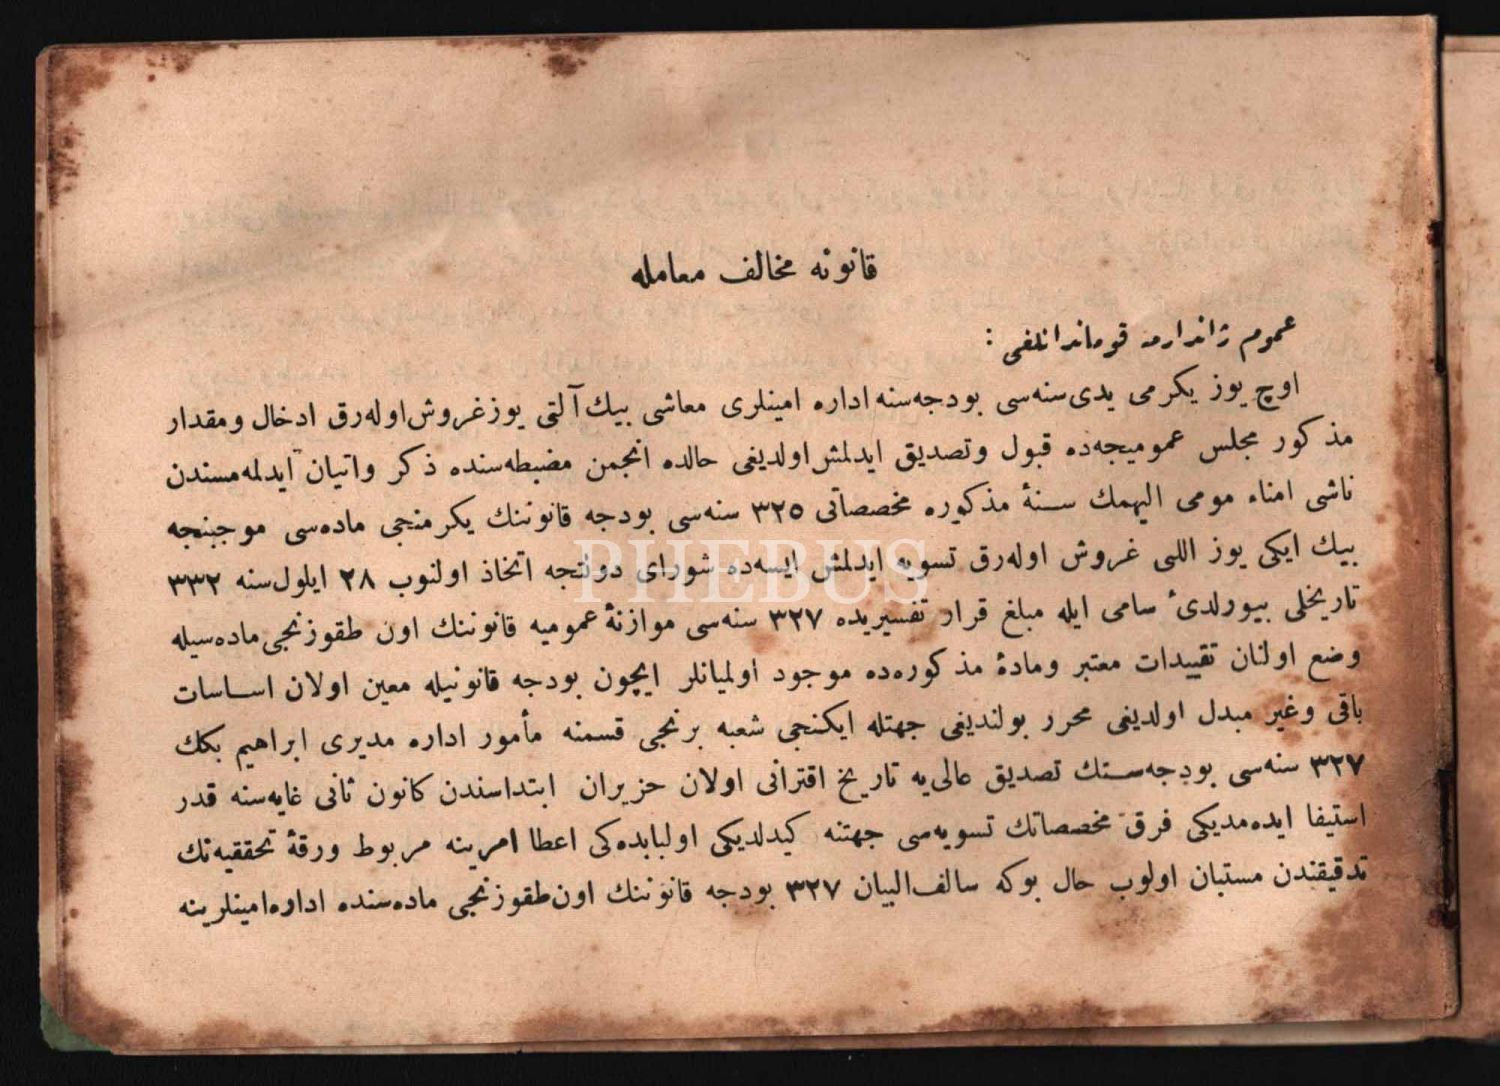 قانونه مخالف معامله
عموم ژاندارمه قوماندانلغی :
اوچ یوز یكرمی یدی سنه‌سی بودجه‌سنه اداره امینلری معاشی بیك آلتی یوز غروش اوله‌رق ادخال و مقدار
مذكور مجلس عمومیجه‌ده قبول و تصدیق ایدلمش اولدیغی حالده انجمن مضبطه‌سنده ذكر و اتیان ایدلمه‌مسندن
ناشی امناء مومی الیهمك سنهٔ مذكوره مخصصاتی ٣٢٥ سنه‌سی بودجه قانوننك یكرمنجی ماده‌سی موجبنجه
بیك ایكی یوز اللی غروش اوله‌رق تسویه ایدلمش ایسه‌ده شورای دولتجه اتخاذ اولنوب ٢٨ ایلول سنه ٣٣٢
تاریخلی بیورلدیٔ سامی ایله مبلغ قرار تفسیریده ٣٢٧ سنه‌سی موازنهٔ عمومیه قانوننك اون طقوزنجی ماده‌سیله
وضع اولنان تقییدات معتبر ومادهٔ مذكوره‌ده موجود اولمیانلر ایچون بودجه قانونیله معین اولان اساسات
باقی وغیر مبدل اولدیغی محرر بولندیغی جهتله ایكنجی شعبه برنجی قسمنه مأمور اداره مدیری ابراهیم بكك
٣٢٧ سنه‌سی بودجه‌سنك تصدیق عالی‌یه تاریخ اقترانی اولان حزیران ابتداسندن كانون ثانی غایه‌سنه قدر
استیفا ایده‌مدیكی فرق مخصصاتك تسویه‌سی جهتنه كیدلدیكی اولبابده‌كی اعطا امرینه مربوط ورقهٔ تحققیه‌نك
تدقیقندن مستبان اولوب حال بوكه سالف‌البیان ٣٢٧ بودجه قانوننك اون طقوزنجی ماده‌سنده اداره امینلرینه
PHEBUS